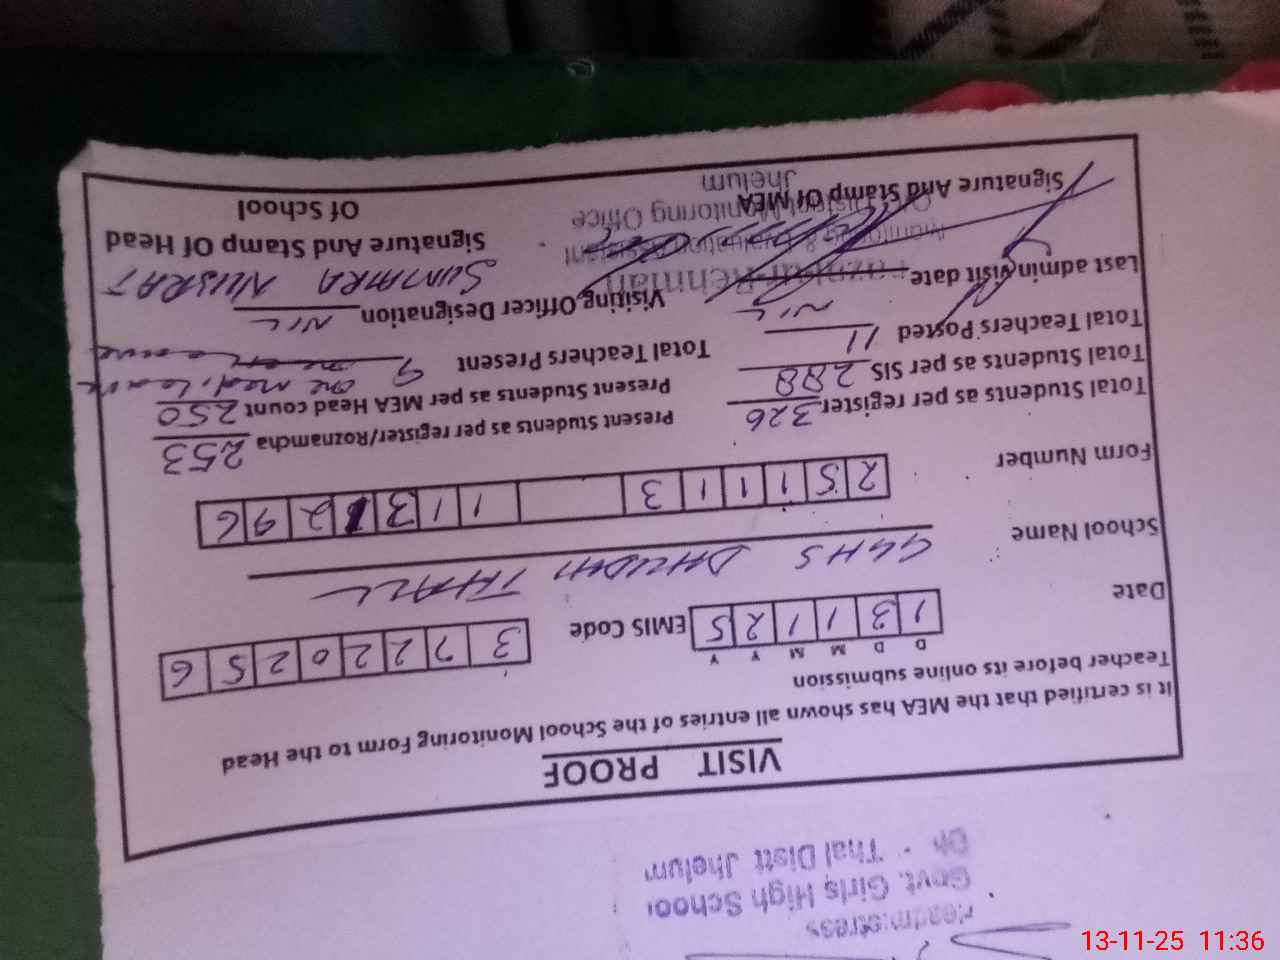 VISIT PROOF
It is certified that the MEA has shown all entries of the School Monitoring Form to the Head
Teacher before its online submission
D D M M Y Y
Date 1 3 1 1 2 5 EMIS Code 3 7 2 2 0 2 5 6
School Name GGHS DHUDHI THALL
Form Number 2 5 1 1 1 1 3 1 1 3 1 2 9 6
Total Students as per register 326 Present Students as per register/Roznamcha 253
Total Students as per SIS 288 Present Students as per MEA Head count 250
Total Teachers Posted 11 Total Teachers Present 9 one med, leave
Last admin visit date NIL Visiting Officer Designation NIL
SUMAIRA NUSRAT
Fazal-ur-Rehman
Monitoring & Evaluation Assistant
District Monitoring Office
Jhelum
Signature And Stamp Of MEA
Signature And Stamp Of Head
Of School
Headmistress
Govt. Girls High School
Thal Distt Jhelum
13-11-25 11:36